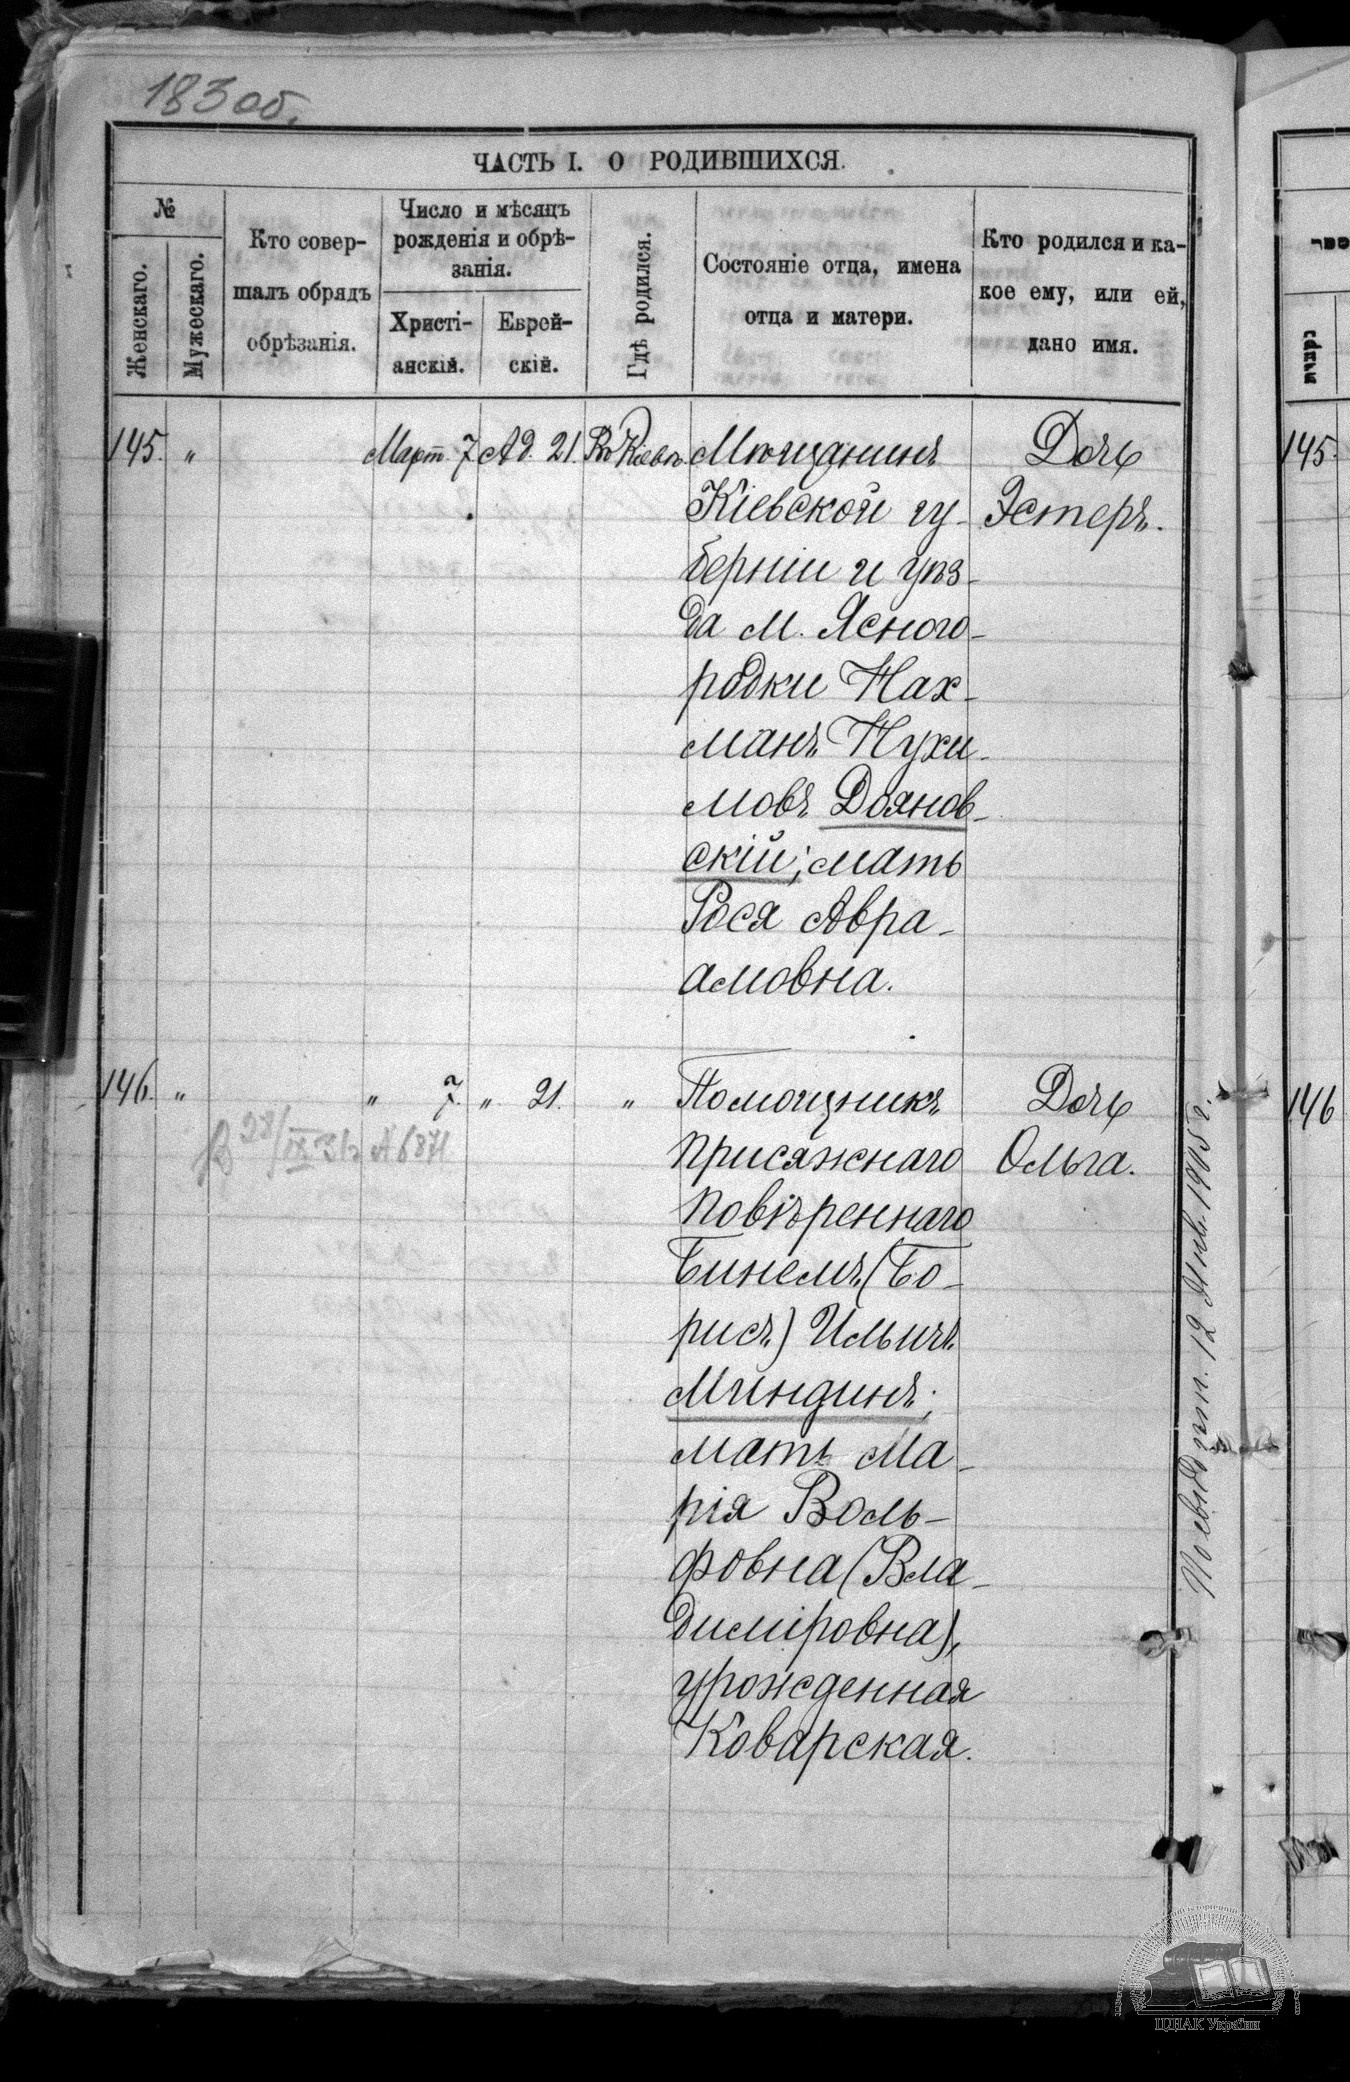 183 об.
ЧАСТЬ I. О РОДИВШИХСЯ.
№
Женскаго.
Мужескаго.
Кто совер-
шалъ обрядъ
обрѣзанія.
Число и мѣсяцъ
рожденія и обрѣ-
занія.
Христі-
анскій.
Еврей-
скій.
Гдѣ родился.
Состояніе отца, имена
отца и матери.
Кто родился и ка-
кое ему, или ей,
дано имя.
145. " Март. 7 Ад. 21. Въ Кіевѣ Мѣщанинъ Дочь
Кіевской гу- Эстеръ.
берніи и уѣз-
да м. Ясного-
родки Нах-
манъ Нухи-
мовъ Дояновскій
скій; мать
Рося Авра-
амовна.
146. " " 7. " 21. " Помощникъ Дочь
присяжнаго Ольга.
повѣреннаго
Бинемъ (Бо-
рисъ) Ильичъ
Миндинъ;
мать Ма-
рія Воль-
фовна (Вла-
диміровна),
урожденная
Коварская.
12 Янв. 1905 г.
145.
146
ЦДІАК України